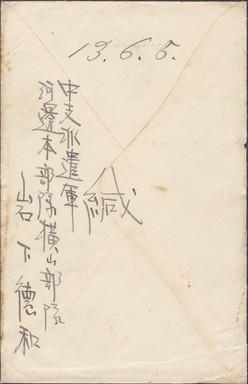 13.6.5.
緘
中支派遣軍
河邊本部隊横山部隊
岩下德和